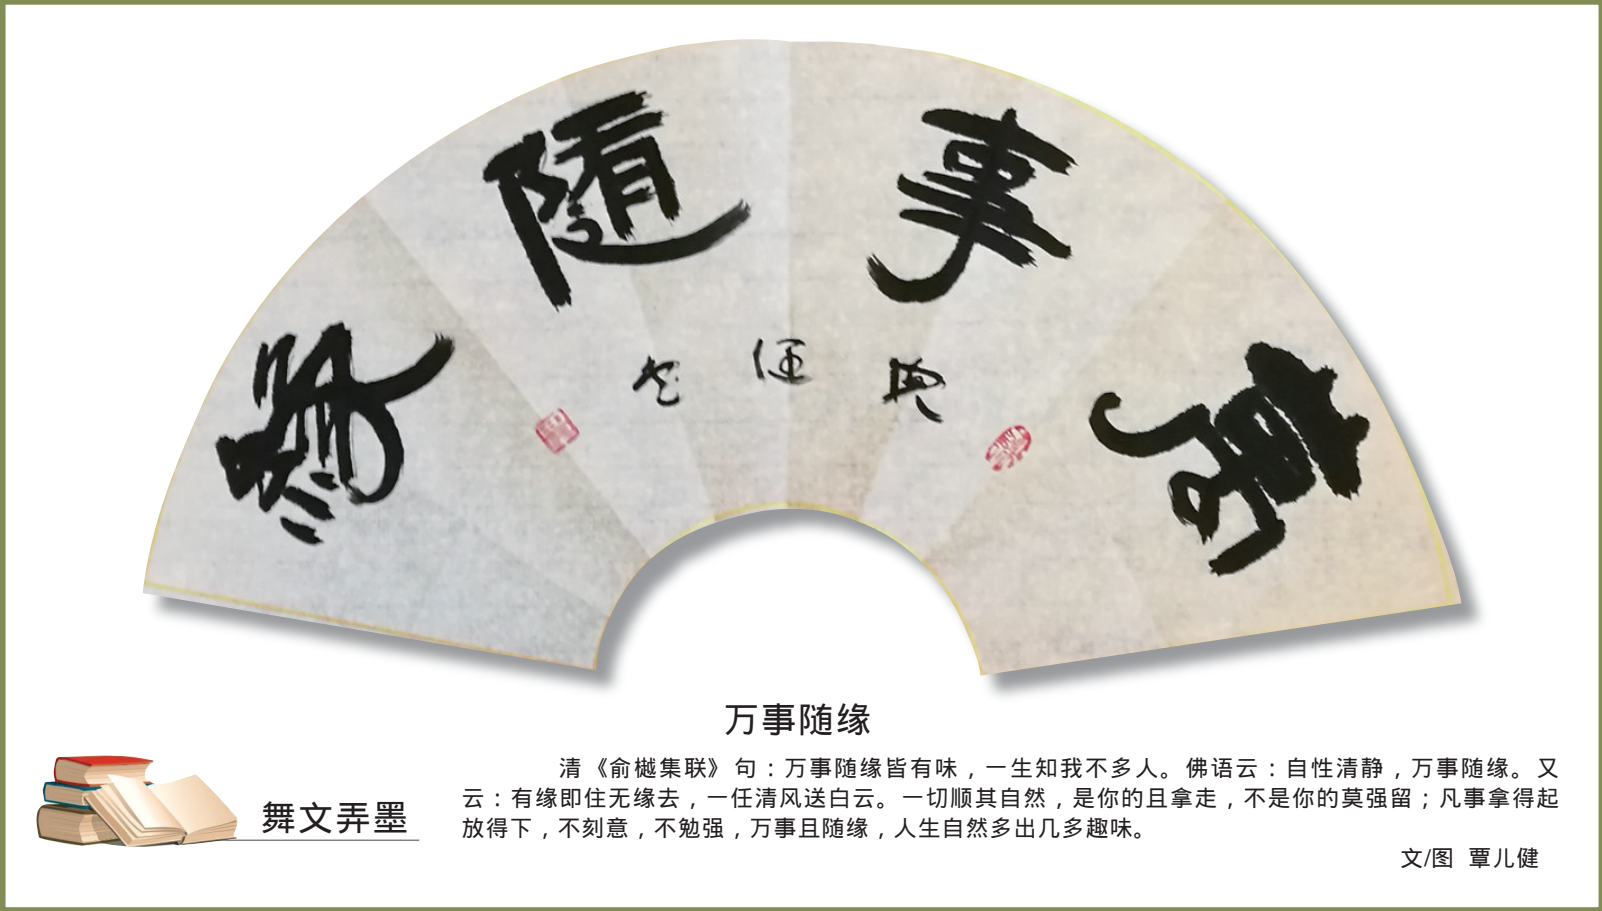 萬事隨緣
万事随缘
清《俞樾集联》句：万事随缘皆有味，一生知我不多人。佛语云：自性清静，万事随缘。又
云：有缘即住无缘去，一任清风送白云。一切顺其自然，是你的且拿走，不是你的莫强留；凡事拿得起
放得下，不刻意，不勉强，万事且随缘，人生自然多出几多趣味。
文/图 覃儿健
舞文弄墨